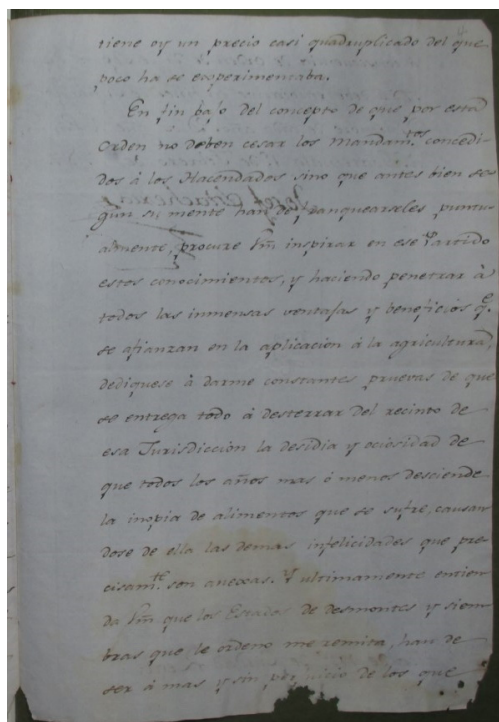 tiene oy un precio casi quadruplicado del que
poco ha se experimentaba.
En fin bajo del concepto de que por esta
orden no deben cesar los Mandam.tos concedi-
dos á los Hacendados sino que antes bien se-
gun su mente han de franquearseles puntu-
almente, procure Vm inspirar en ese Partido
estos conocimientos, y haciendo penetrar á
todos las inmensas ventajas y beneficios q.e
se afianzan en la aplicacion á la agricultura,
dediquese á darme constantes pruevas de que
se entrega todo á desterrar del recinto de
esa Jurisdiccion la desidia y ociosidad de
que todos los años mas ó menos desciende
la inopia de alimentos que se sufre, causan
dose de ella las demas infelicidades que pre-
cisam.te son anexas. Y ultimamente entien-
da Vm que los Estados de desmontes y siem-
bras que le ordeno me remita, han de
ser á mas y sin perjuicio de los que